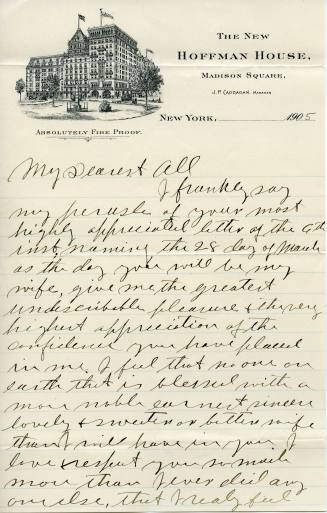 THE NEW
HOFFMAN HOUSE,
MADISON SQUARE,
J. P. CADDAGAN, MANAGER
ABSOLUTELY FIRE PROOF.
NEW YORK, 1905
My Dearest All
I frankly say
my perusal of your most
highly appreciated letter of the 9th
inst, naming the 28 day of March
as the day you will be my
wife, give me the greatest
undescribable pleasure & the very
highest appreciation of the
confidence you have placed
in me, I feel that no one on
earth that is blessed with a
more noble earnest sincere
lovely & sweeter or better wife
than I will have in you I
love & respect you so much
more than I ever did any
one else, that I really feel